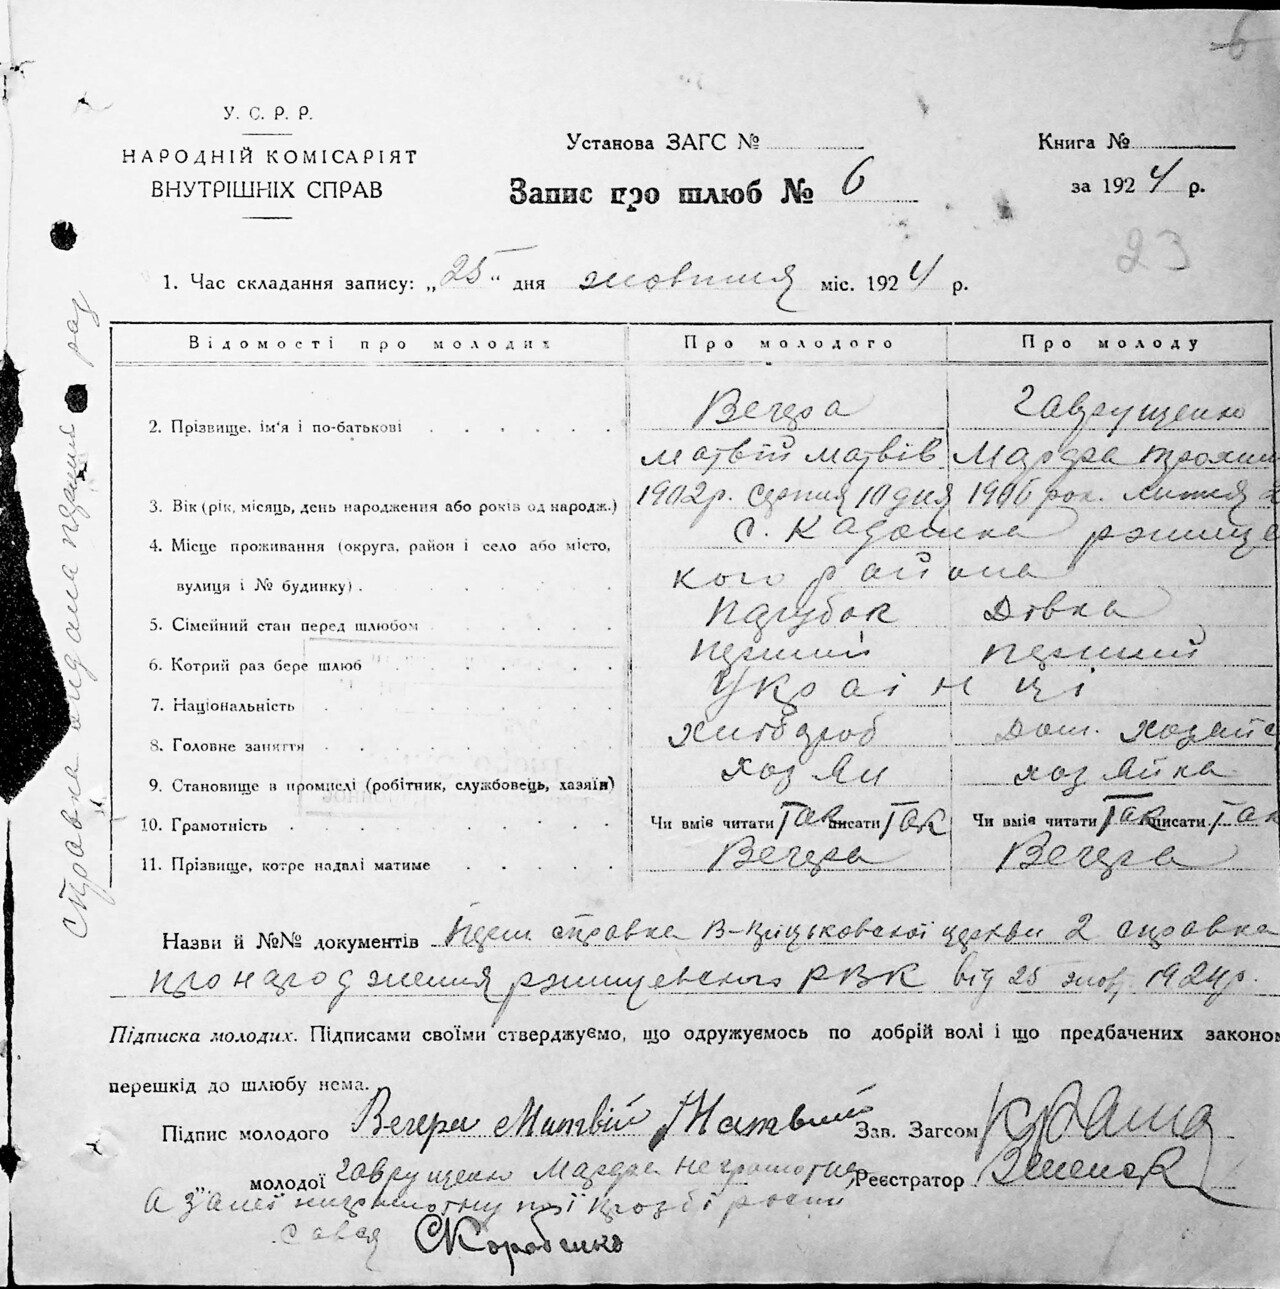 6
У. С. Р. Р.
НАРОДНІЙ КОМІСАРІЯТ
ВНУТРІШНІХ СПРАВ
Установа ЗАГС №
Запис про шлюб № 6
Книга №
за 1924 р.
23
1. Час складання запису: „25“ дня жовтня міс. 1924 р.
Відомості про молодих Про молодого Про молоду
2. Прізвище, ім'я і по-батькові Вечера Гаврущенко
Матвій Матвів Марфа Трохим
3. Вік (рік, місяць, день народження або років од народж.) 1902р. серпня 10 дня 1906 рок. липня 2
4. Місце проживання (округа, район і село або місто, с. Кадомка ржищев
вулиця і № будинку). кого района
5. Сімейний стан перед шлюбом парубок Дівка
6. Котрий раз бере шлюб перший перший
7. Національність Українці
8. Головне заняття хлібороб Дом. хозяйс
9. Становище в промислі (робітник, службовець, хазяїн) хозяин хозяйка
10. Грамотність Чи вміє читати Так писати Так Чи вміє читати Так писати Так
11. Прізвище, котре надалі матиме Вечера Вечера
Назви й №№ документів справка церкви 2 справка
про народження ржищевского РВК від 25 жовт. 1924р.
Підписка молодих. Підписами своїми стверджуємо, що одружуємось по добрій волі і що предбачених законом
перешкід до шлюбу нема.
Підпис молодого Вечера Матвій Матвій Зав. Загсом
молодої Гаврущенко Марфа неграмотна, Реєстратор
А за неї неграмотну по її прозбі роспи
сався СКоробенко
Справка видана